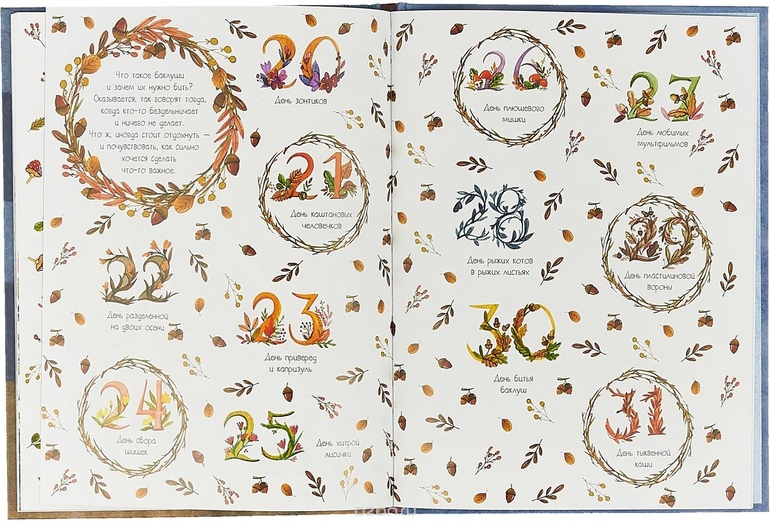 Что такое баклуши
и зачем их нужно бить?
Оказывается, так говорят тогда,
когда кто-то бездельничает
и ничего не делает.
Что ж, иногда стоит отдохнуть —
и почувствовать, как сильно
хочется сделать
что-то важное.
20
День зонтиков
21
День каштановых
человечков
22
День разделенной
на двоих осени
23
День приверед
и капризуль
24
День сбора
шишек
25
День хитрой
лисички
26
День плюшевого
мишки
27
День любимых
мультфильмов
28
День рыжих котов
в рыжих листьях
29
День пластилиновой
вороны
30
День битья
баклуш
31
День тыквенной
каши